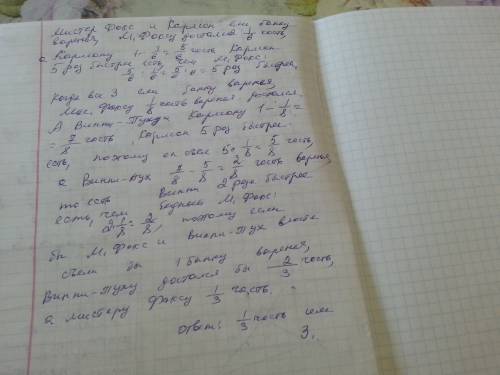 Мистер Фокс и Карлсон ели банку
варенья, М. Фоксу достался 1/6 часть,
а Карлсону 1 - 1/6 = 5/6 часть Карлсон
5 раз быстрее есть, чем М. Фокс.
5/6 : 1/6 = 5/6 · 6 = 5 раз быстрее,
Когда все 3 ели банку варенья,
Мис. Фоксу 1/8 часть варенья достался.
А Винни-Пуху и Карлсону 1 - 1/8 =
= 7/8 часть, Карлсон 5 раз быстрее
есть, поэтому он съел 5 · 1/8 = 5/8 часть,
а Винни-Пух 7/8 - 5/8 = 2/8 часть варенья,
то есть Винни 2 раза быстрее
есть, чем бедный М. Фокс:
2 · 1/8 = 2/8, поэтому если
бы М. Фокс и Винни-Пух вместе
съели бы 1 банку варенья,
Винни-Пуху достался бы 2/3 часть,
а мистеру Фоксу 1/3 часть.
ответ: 1/3 часть или
3.